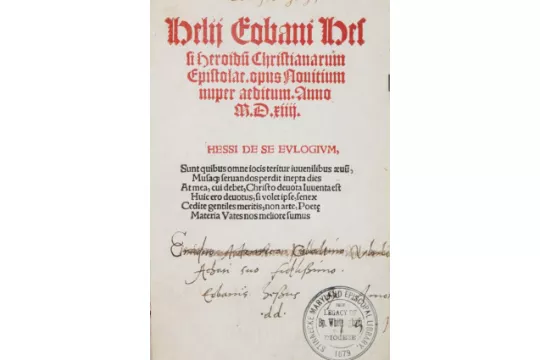 Helij Eobani Hes
si Heroidū Christianarum
Epistolae. opus Novitium
nuper aeditum. Anno
M.D.xiiij.
HESSI DE SE EVLOGIVM,
Sunt quibus omne iocis teritur iuvenilibus æuū,
Musaq; servandos perdit inepta dies
At mea, cui debet, Christo devota Iuventa est
Huic ero devotus, si volet ipse, senex
Cedite gentiles meritis, non arte. Poetę
Materia Vates nos meliore sumus
suo
Eobanus Hessus
.dd.
MARYLAND EPISCOPAL LIBRARY
LEGACY OF
Bp. Whittingham
1879